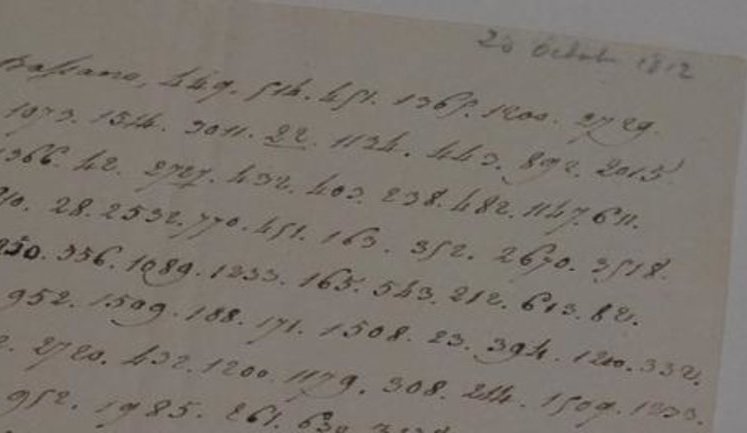 20 Octob 1812
Bassano, 449. 514. 451. 1365. 1200. 2729.
1973. 1544. 3011. 22. 1134. 443. 892. 2013
1366. 42. 2727. 432. 403. 238. 482. 1147. 611.
28. 2532. 770. 451. 163. 352. 2670. 3518.
356. 1089. 1233. 165. 543. 212. 613. 82.
952. 1509. 188. 171. 1508. 23. 394. 1210. 332.
2720. 432. 1200. 1179. 308. 214. 1509. 1233.
952. 1985. 261.